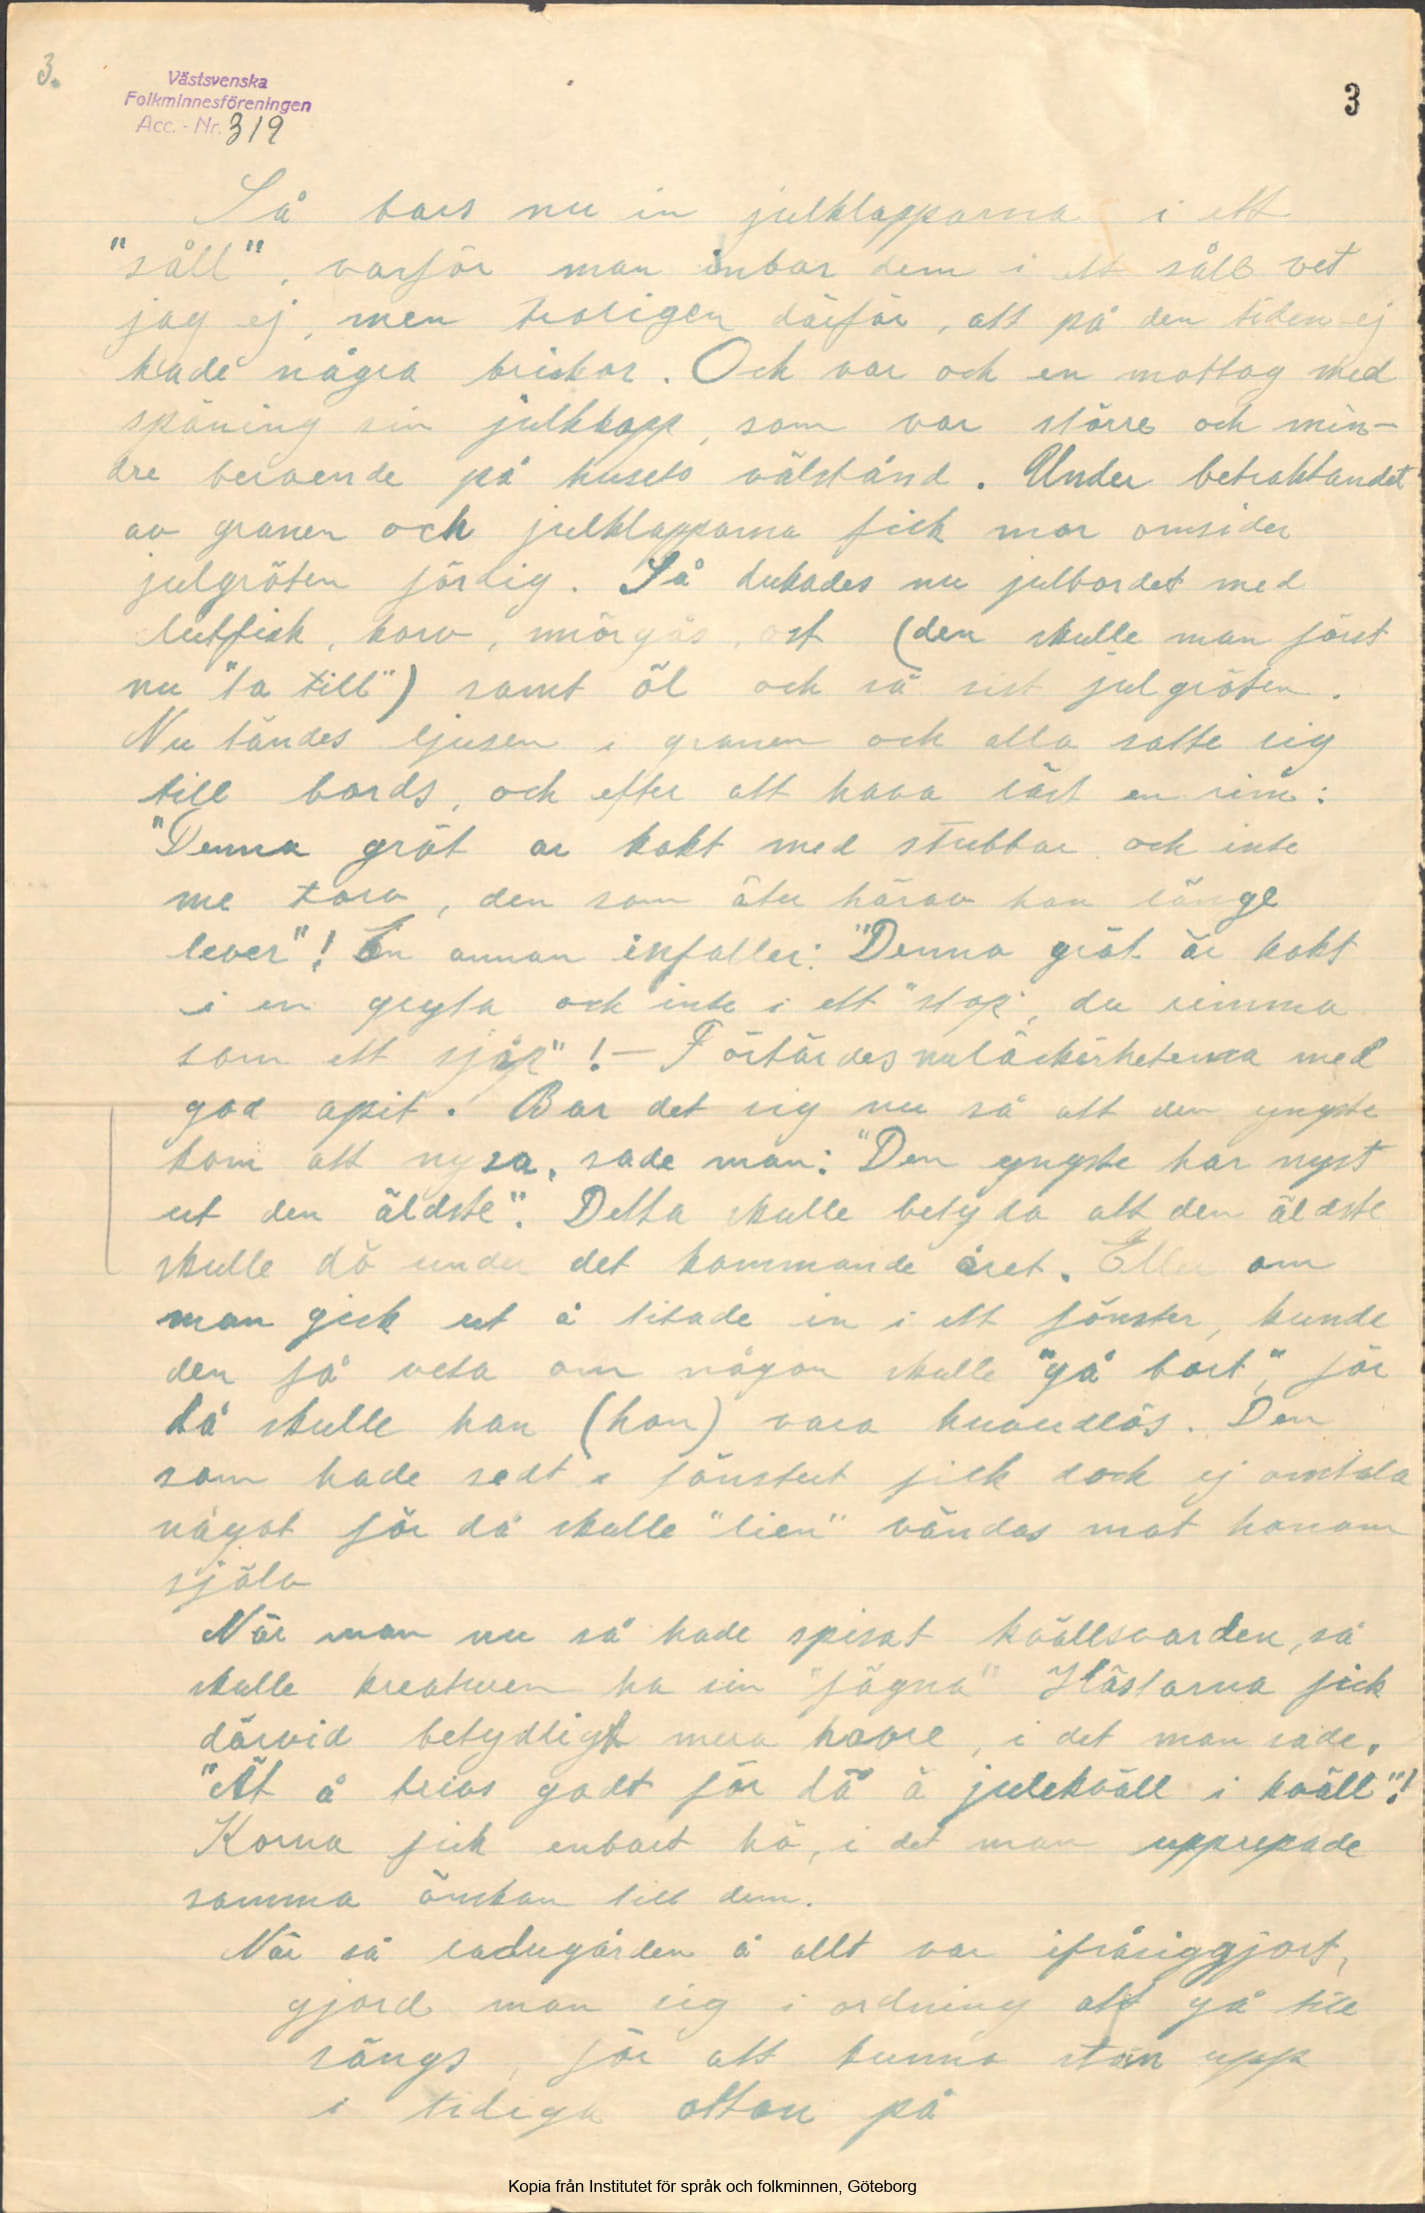 3.
Västsvenska
Folkminnesföreningen
Acc. - Nr. 319
3
Så bars nu in julklapparna i ett
"såll", varför man inbar dem i ett såll vet
jag ej, men troligen därför, att på den tiden ej
hade några brickor. Och var och en mottog med
späning sin julklapp, som var större och min-
dre beroende på husets välstånd. Under betraktandet
av granen och julklapparna fick mor omsider
julgröten färdig. Så dukades nu julbordet med
lutfisk, korv, smörgås, ost (den skulle man först
nu "ta till") samt öl och så sist julgröten.
Nu tändes ljusen i granen och alla satte sig
till bords, och efter att hava läst en rim:
"Denna gröt är kokt med stubbar och inte
me torv, den som äter härav han länge
lever"! En annan infaller: "Denna gröt är kokt
i en gryta och inte i ett "stop", du rimma
som ett sjåp"! — Förtärdes nu läckerheterna med
god apit. Bar det sig nu så att den yngste
kom att nysa, sade man: "Den yngste har nyst
ut den äldste". Detta skulle betyda att den äldste
skulle dö under det kommande året. Eller om
man gick ut å titade in i ett fönster, kunde
den få veta om någon skulle "gå bort", för
då skulle han (hon) vara huvudlös. Den
som hade sedt i fönstret fick dock ej omtala
något för då skulle "lien" vändas mot honom
själv
När man nu så hade spisat kvällsvarden, så
skulle kreaturen ha sin "fägna" Hästarna fick
därvid betydligt mera havre, i det man sade,
"Ät å trivs godt för dä ä julekväll i kväll"!
Korna fick enbart hö, i det man upprepade
samma önskan till dem.
När så ladugården å allt var ifråsiggjort,
gjord man sig i ordning att gå till
sängs, för att kunna stän upp
i tidiga ottan på
Kopia från Institutet för språk och folkminnen, Göteborg